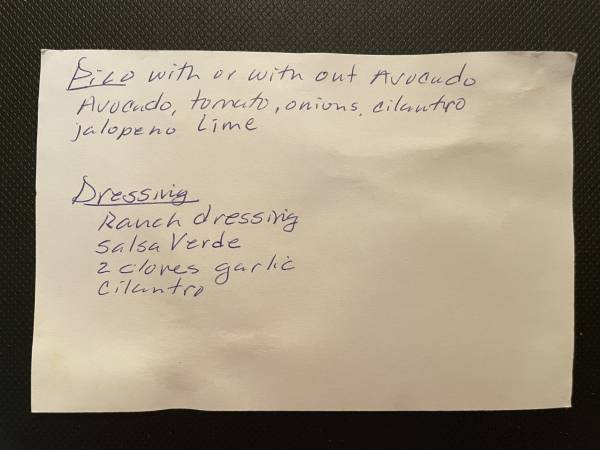 Pico with or with out Avocado
Avocado, tomato, onions, cilantro
jalopeno Lime
Dressing
Ranch dressing
Salsa Verde
2 cloves garlic
Cilantro